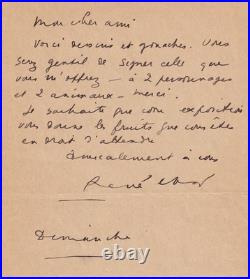 Mon cher ami
Voici dessins et gouaches. Vous
serez gentil de signer celle que
vous m'offrez - à 2 personnages
et 2 animaux - merci.
Je souhaite que cette exposition
vous donne les fruits que vous êtes
en droit d'attendre
Amicalement à vous
René Char
Dimanche
thebestof.biz